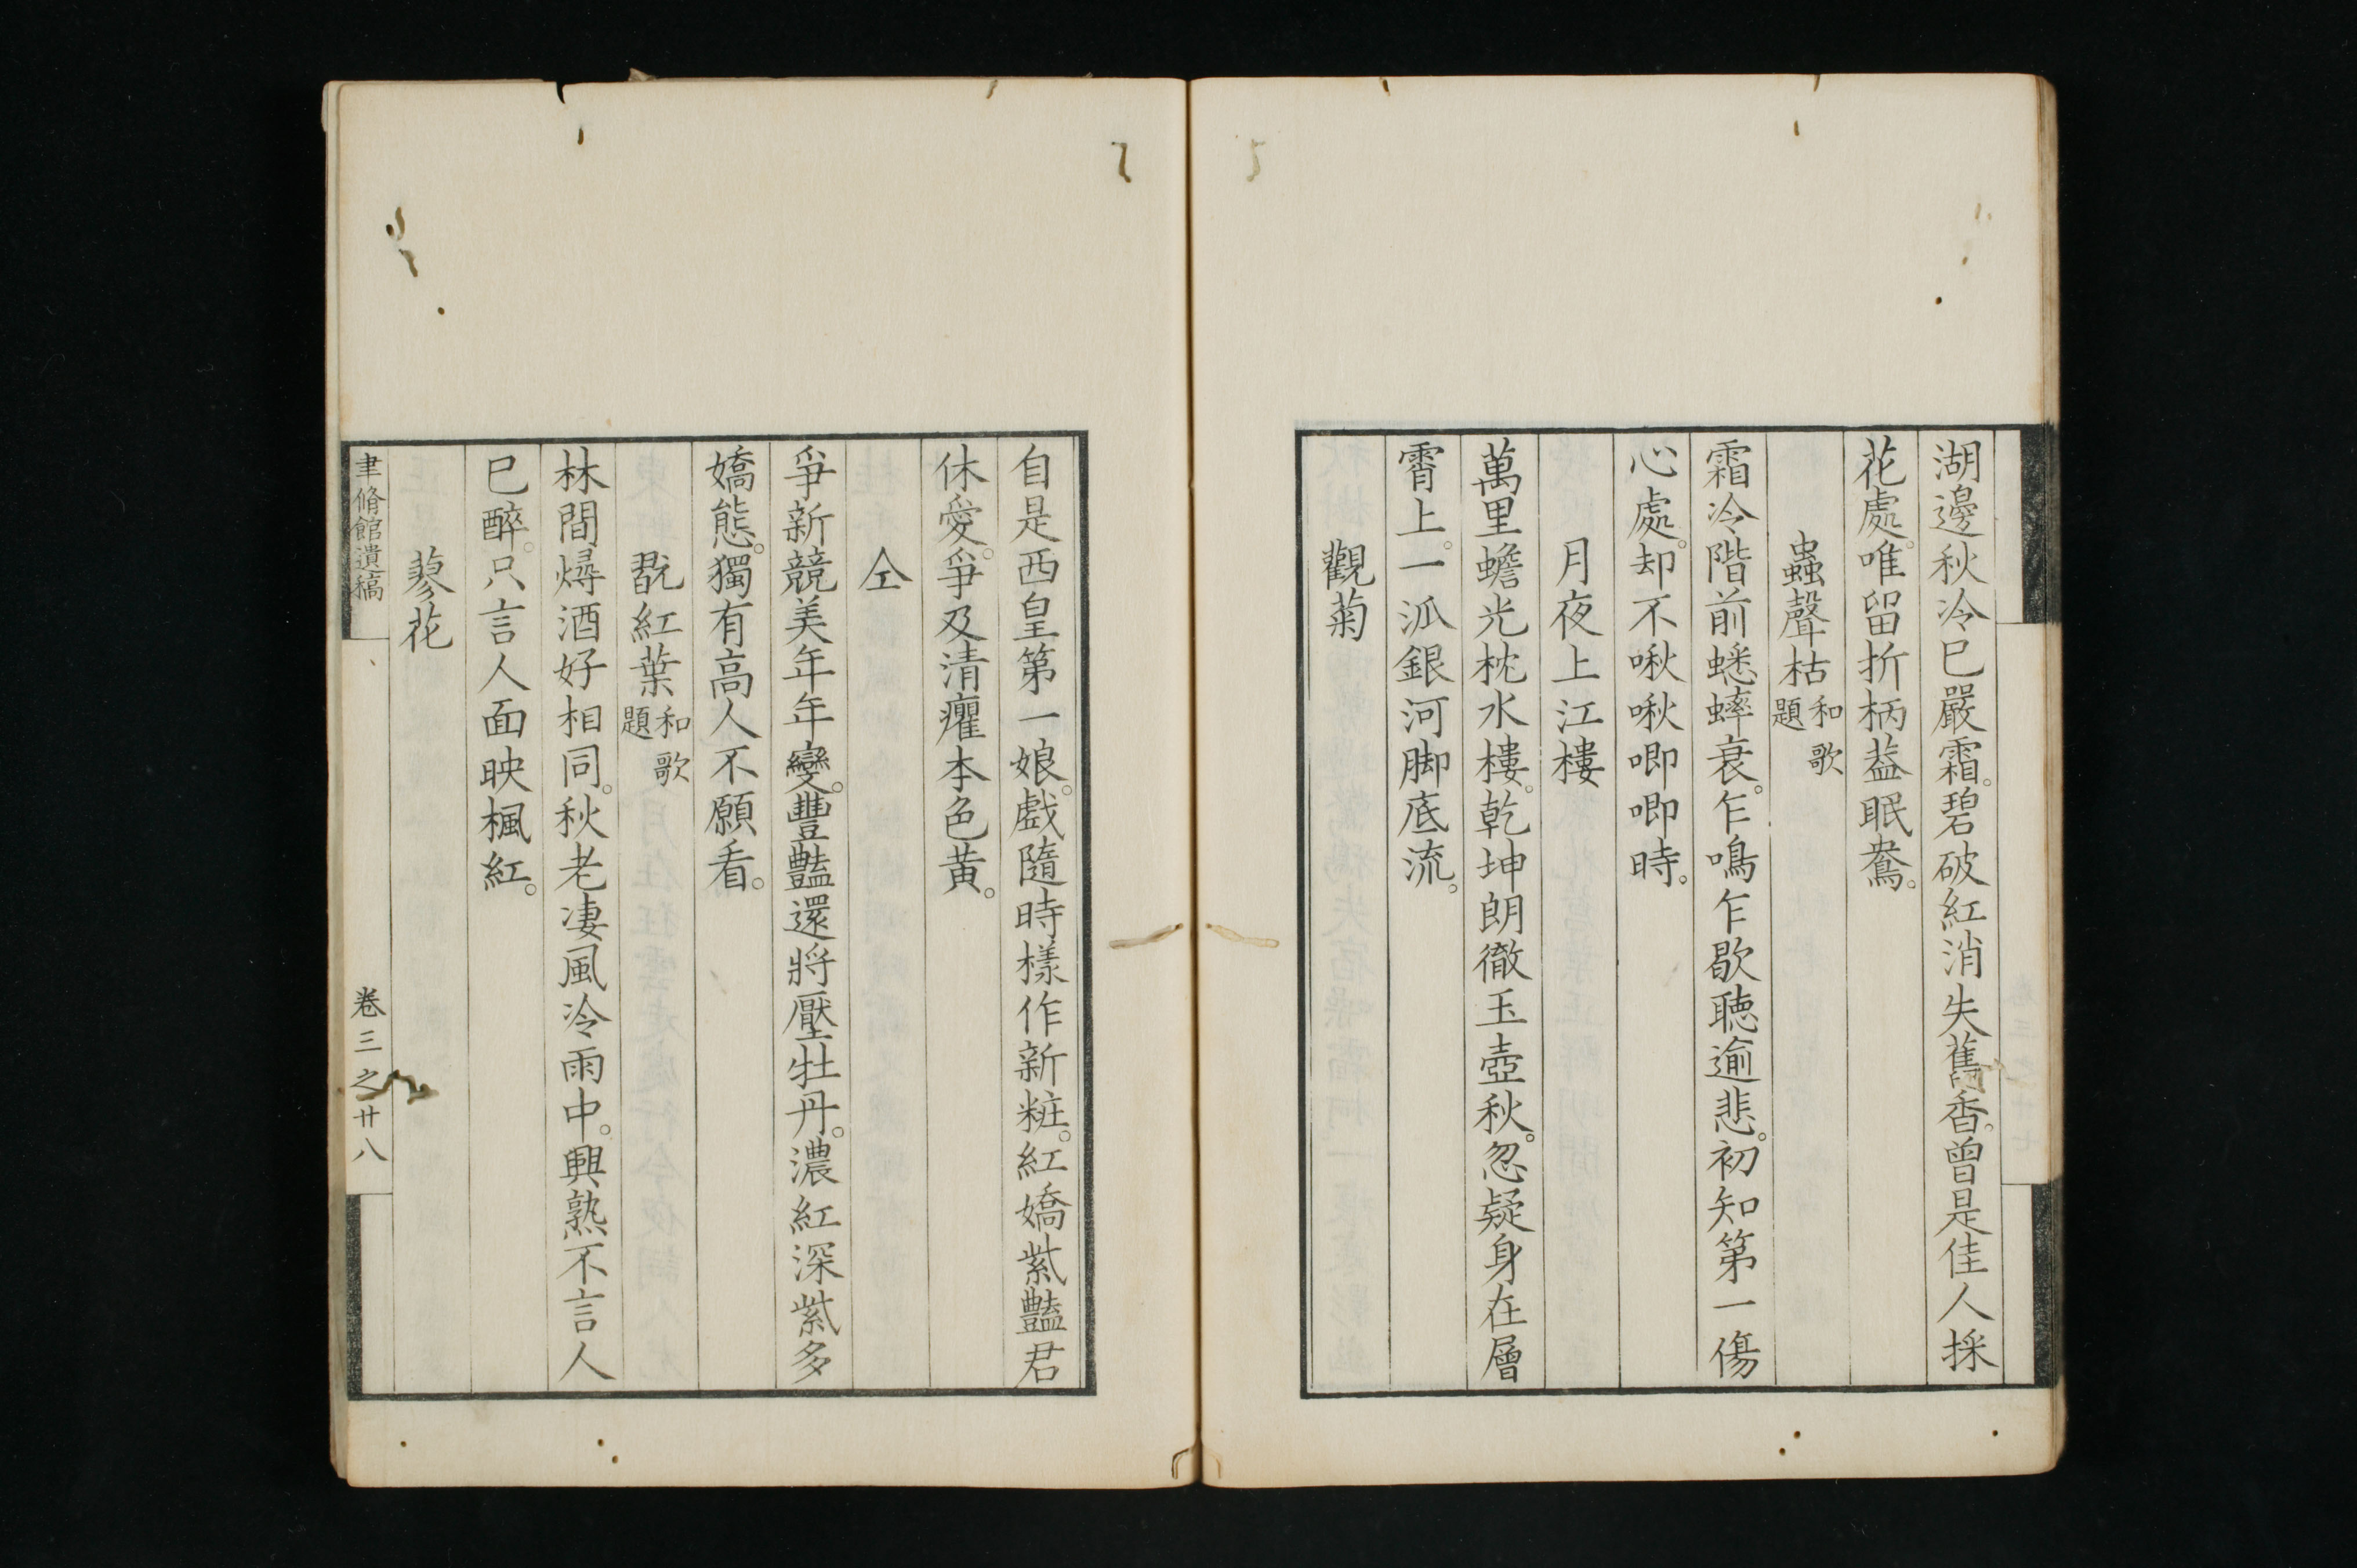 湖邊秋冷已嚴霜。碧破紅消失舊香。曾是佳人採
花處。唯留折柄葢眠鴦。
蟲聲枯和歌題
霜冷階前蟋蟀衰。乍鳴乍歇聴逾悲。初知第一傷
心處。却不啾啾唧唧時。
月夜上江樓
萬里蟾光枕水樓。乾坤朗徹玉壺秋。忽疑身在層
霄上。一泒銀河脚底流。
觀菊
自是西皇第一娘。戲隨時樣作新粧。紅嬌紫豔君
休愛。爭及清癯本色黄。
仝
爭新競美年年變。豐豔還將壓牡丹。濃紅深紫多
嬌態。獨有高人不願看。
翫紅葉和歌題
林間燖酒好相同。秋老凄風冷雨中。興熟不言人
已醉。只言人面映楓紅。
蓼花
聿脩館遺稿
卷三之廿八